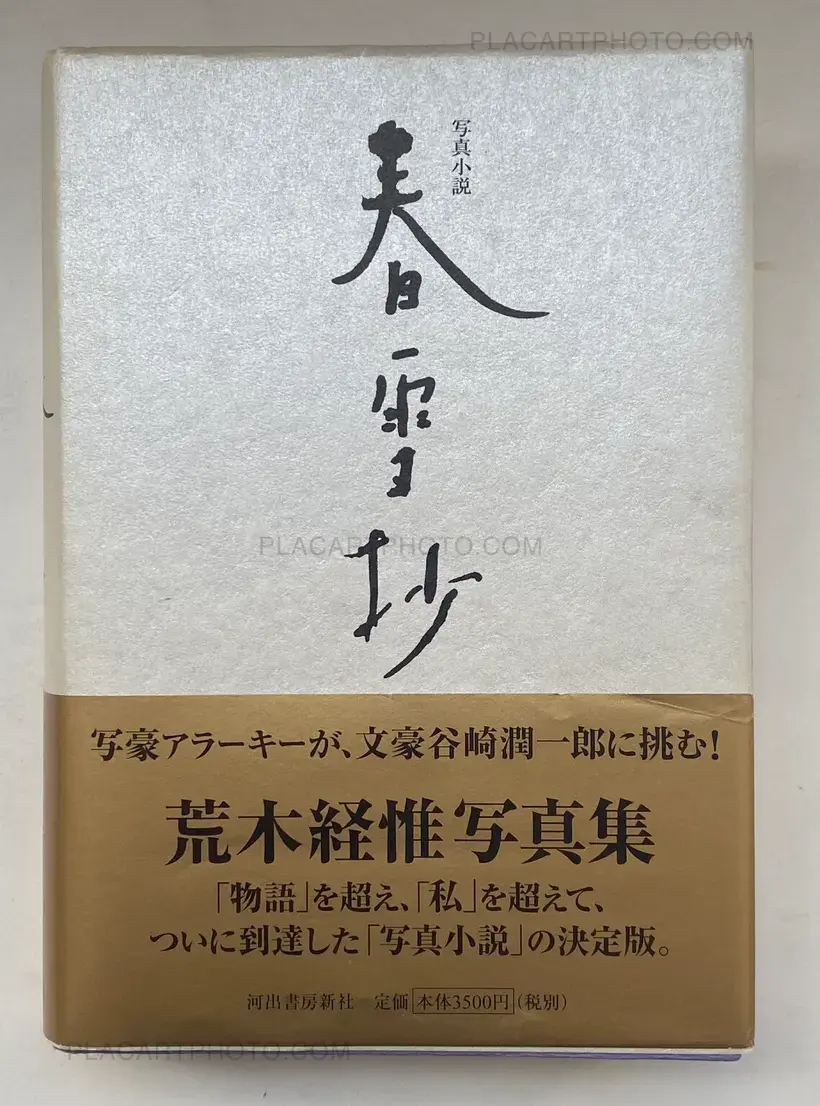 PLACARTPHOTO.COM
写真小説
春雪抄
PLACARTPHOTO.COM
写豪アラーキーが、文豪谷崎潤一郎に挑む!
荒木経惟写真集
「物語」を超え、「私」を超えて、
ついに到達した「写真小説」の決定版。
河出書房新社 定価 本体3500円(税別)
PLACARTPHOTO.COM